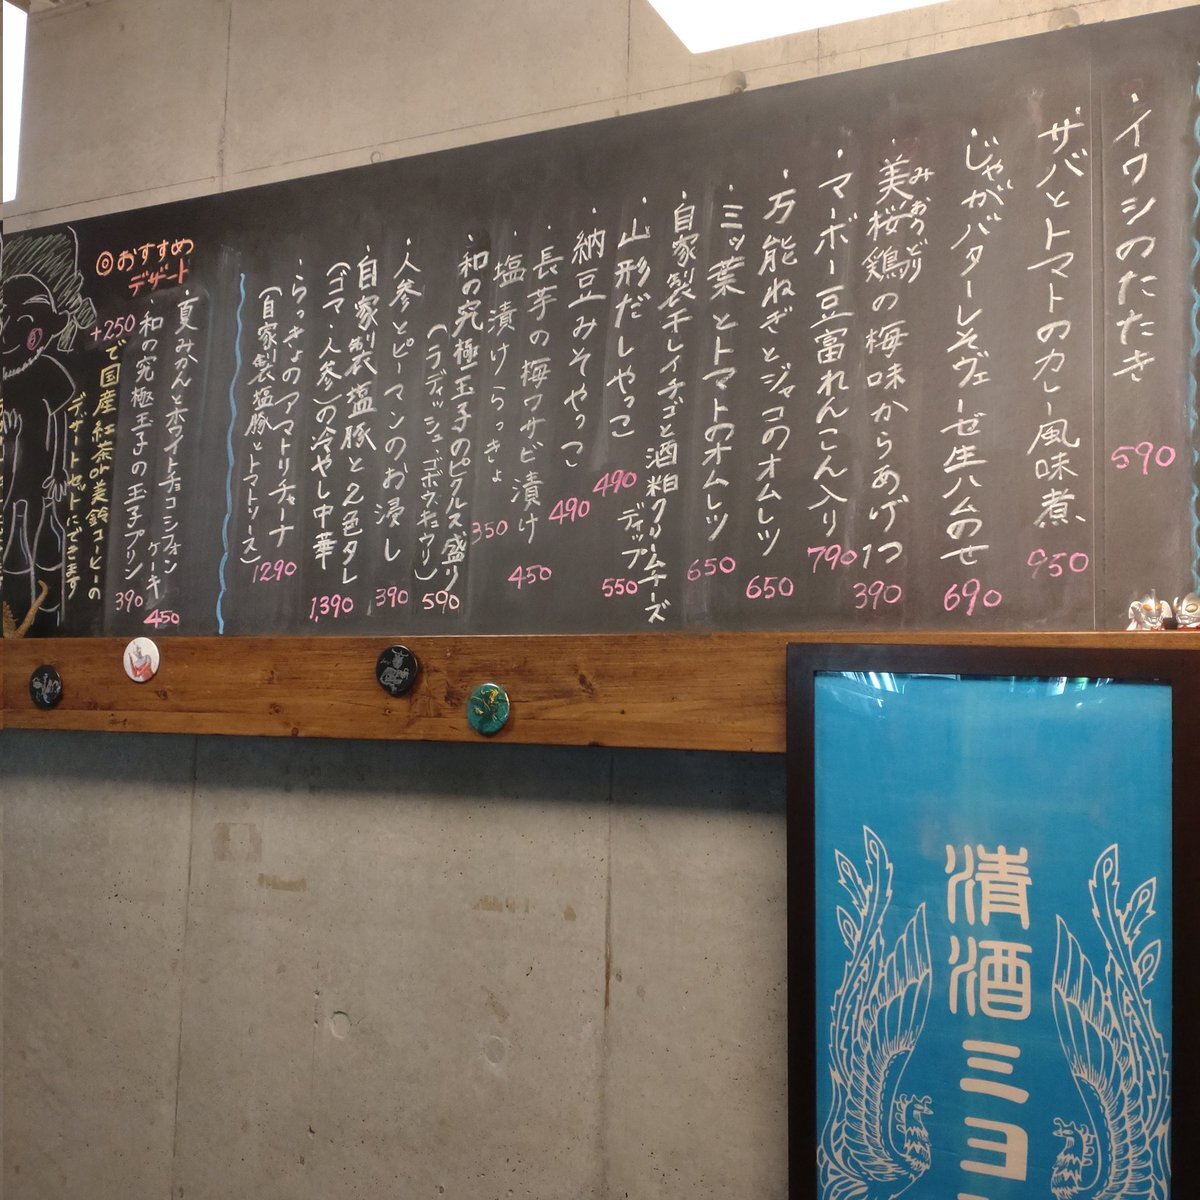 ・イワシのたたき 590
・サバとトマトのカレー風味煮 950
・じゃがバターしそヴェーゼ生ハムのせ 690
・美桜鶏の梅味からあげ1つ 390
みおうどり
・マーボー豆富れんこん入り 790
・万能ねぎとジャコのオムレツ 650
・三ッ葉とトマトのオムレツ 650
・自家製干しイチゴと酒粕クリームチーズ
ディップ 550
・山形だしやっこ 490
・納豆みそやっこ 490
・長芋の梅ワサビ漬け 450
・塩漬けらっきょ 350
・和の究極玉子のピクルス盛り
(ラディッシュ、ゴボウ、キュウリ) 590
・人参とピーマンのお浸し 390
・自家製塩豚と2色タレ
(ゴマ・人参)の冷やし中華 1,390
・らっきょのアマトリチャーナ
(自家製塩豚とトマトソース) 1290
◎おすすめ
デザート
・夏みかんとホワイトチョコシフォン
ケーキ 450
・和の究極玉子の玉子プリン 390
+250で国産紅茶or美鈴コーヒーの
デザートセットにできます
清酒ミヨ